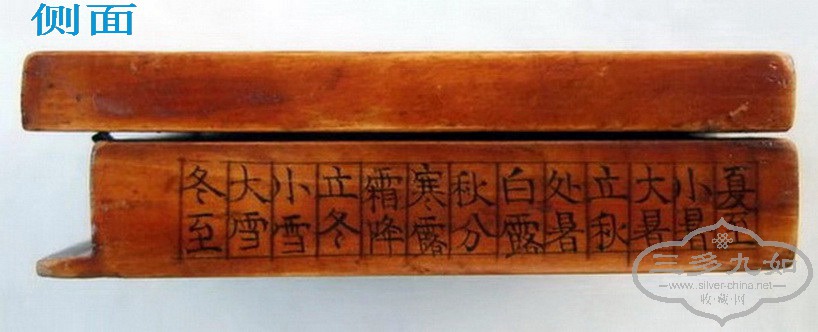 侧面
夏至
小暑
大暑
立秋
处暑
白露
秋分
寒露
霜降
立冬
小雪
大雪
冬至
三多九如
www.silver-china.net
收藏网